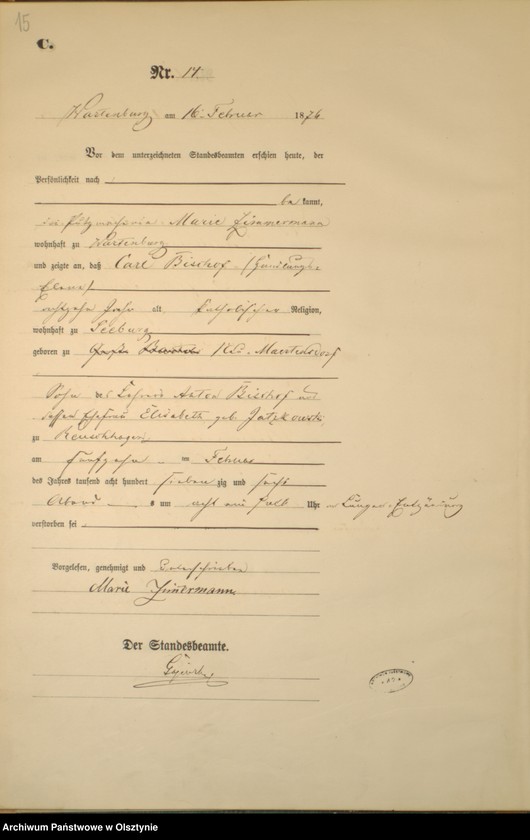 15
C.
Nr. 14.
Wartenburg am 16. Februar 1876
Vor dem unterzeichneten Standesbeamten erschien heute, der
Persönlichkeit nach
bekannt,
Marie Zimmermann
wohnhaft zu Wartenburg
und zeigte an, daß Carl Bischof (Handlungs-
Eleve)
achtzehn Jahr alt, katholischer Religion,
wohnhaft zu Seeburg
geboren zu Kl.
Sohn des Anton Bischof und
dessen Ehefrau Elisabeth geb
zu
am fünfzehn ten Februar
des Jahres tausend acht hundert sieben zig und sechs
Abends um acht ein halb Uhr an Lungen-Entzündung
verstorben sei
Vorgelesen, genehmigt und unterschrieben
Marie Zimermann
Der Standesbeamte.
Archiwum Państwowe w Olsztynie